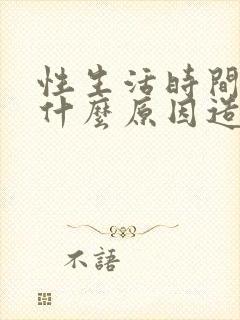 性生活時間
什麼原因造
不語